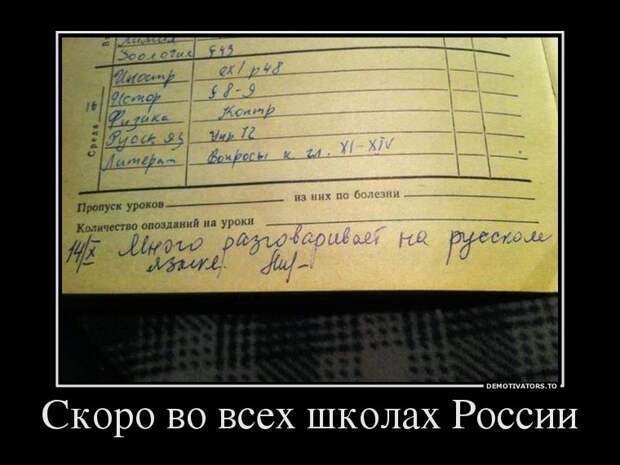 Химия
Зоология § 43
Иностр ex 1 p 48
Истор § 8-9
Физика Контр
Русск яз Упр 72
Литерат Вопросы к гл. XI-XIV
Среда 16
Пропуск уроков из них по болезни
Количество опозданий на уроки
14/X Много разговаривает на русском
языке.
DEMOTIVATORS.TO
Скоро во всех школах России